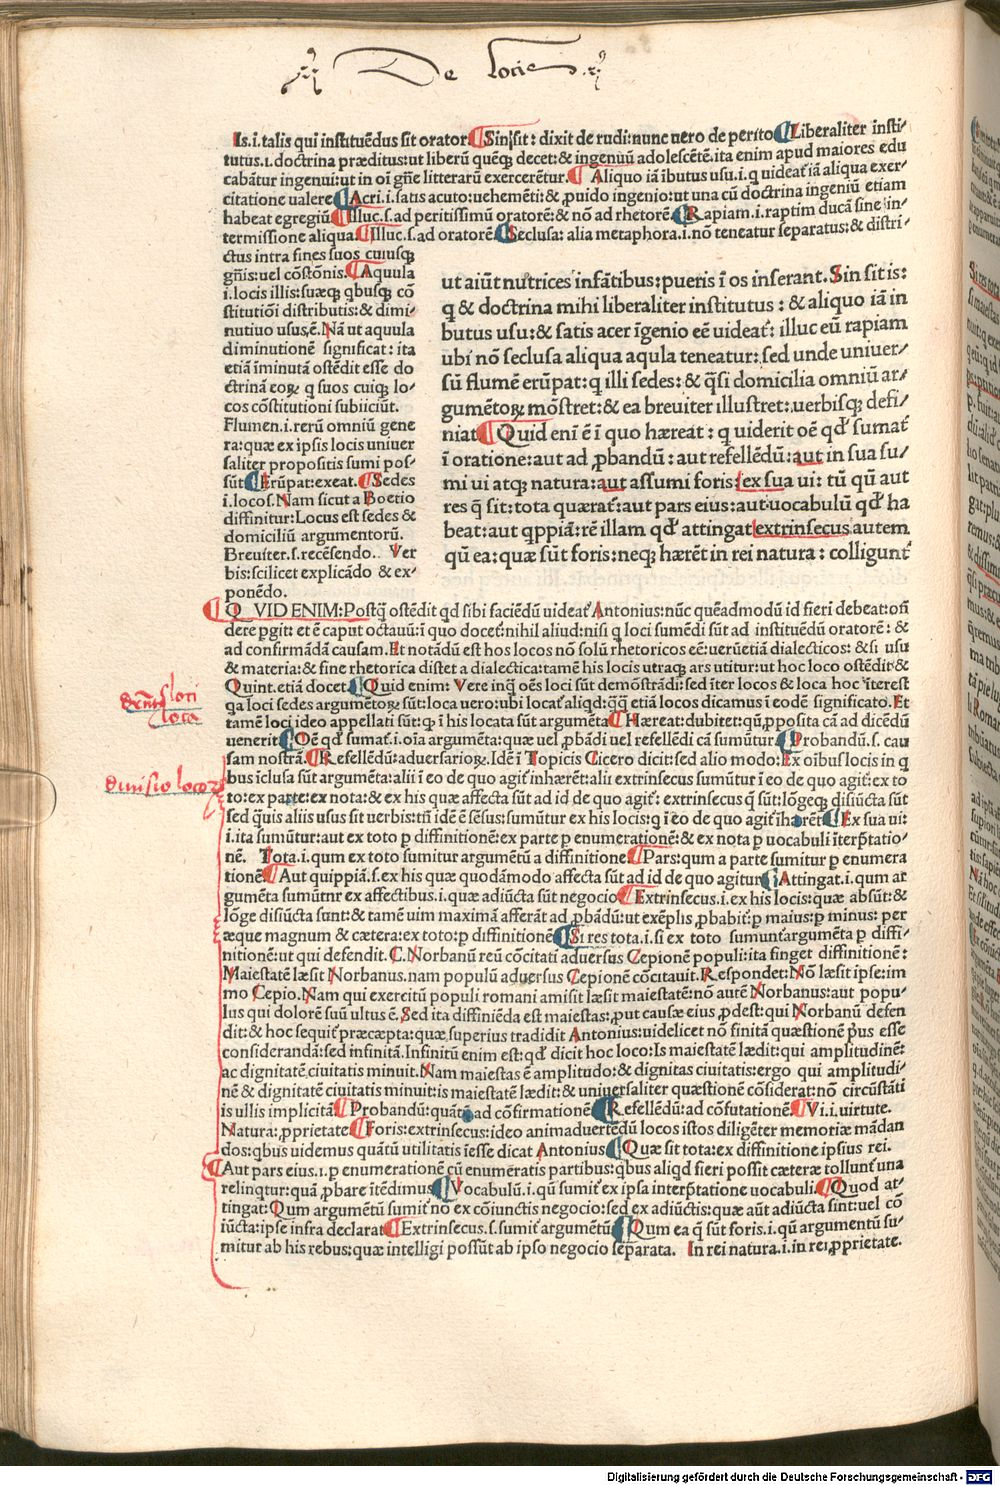 De locis
Is.i.talis qui instituēdus sit orator. ¶ Sin sit: dixit de rudi:nunc uero de perito ¶ Liberaliter insti-
tutus.i.doctrina præditus:ut liberū quēqꝫ decet:& ingenuū adolescētē.ita enim apud maiores edu
cabātur ingenui:ut in oī gn̄e litterarū exercerētur. ¶ Aliquo iā ībutus usu.i.q uideat᷑ iā aliqua exer-
citatione ualere ¶ Acri.i.satis acuto:uehemēti:& ꝓuido ingenio:ut una cū doctrina ingeniū etiam
habeat egregiū ¶ Illuc.s.ad peritissimū oratorē:& nō ad rhetorē ¶ Rapiam.i.raptim ducā sine in-
termissione aliqua. ¶ Illuc.s.ad oratorē. ¶ Seclusa: alia metaphora.i.nō teneatur separatus:& distri-
ctus intra fines suos cuiusqꝫ
gn̄is:uel cōstōnis. ¶ Aquula
.i.locis illis:suæqꝫ qbusqꝫ cō
stitutiōi distributis:& dimi-
nutiuo usus.ē. Nā ut aquula
diminutionē significat: ita
etiā īminutā ostēdit esse do
ctrinā eoꝝ q suos cuiqꝫ lo-
cos cōstitutioni subiiciūt.
Flumen.i.rerū omniū gene
ra:quæ ex ipsis locis uniuer
saliter propositis sumi pos-
sūt ¶ Erūpat:exeat. ¶ Sedes
.i.locos. Nam sicut a Boetio
diffinitur:Locus est sedes &
domiciliū argumentorū.
Breuiter.s.recēsendo. Ver
bis:scilicet explicādo & ex-
ponēdo.
ut aiūt nutrices infātibus:pueris ī os inserant. Sin sit is:
q & doctrina mihi liberaliter institutus : & aliquo iā in
butus usu:& satis acer īgenio eē uideat᷑: illuc eū rapiam
ubi nō seclusa aliqua aqula teneatur: sed unde uniuer-
sū flumē erūpat: q illi sedes: & q̄si domicilia omniū ar-
gumētoꝝ mōstret:& ea breuiter illustret: uerbisqꝫ defi-
niat ¶ Quid enī ē ī quo hæreat : q uiderit oē qd̄ sumat᷑
ī oratione: aut ad ꝓbandū : aut refellēdū: aut in sua su-
mi ui atqꝫ natura: aut assumi foris: ex sua ui: tū qū aut
res q̄ sit: tota quærat᷑: aut pars eius: aut uocabulū qd̄ ha
beat: aut qppiā: rē illam qd̄ attingat extrinsecus autem
qū ea: quæ sūt foris: neqꝫ hærēt in rei natura : colligunt᷑
¶ Q VID ENIM: Postq̄ ostēdit qd sibi faciēdū uideat᷑ Antonius:nūc quēadmodū id fieri debeat:on̄
dere pgit: et ē caput octauū:ī quo docet:nihil aliud:nisi q loci sumēdi sūt ad instituēdū oratorē : &
ad confirmādā causam. Et notādū est hos locos nō solū rhetoricos eē: uerūetiā dialecticos: & si usu
& materia:& fine rhetorica distet a dialectica:tamē his locis utraqꝫ ars utitur:ut hoc loco ostēdit &
Quint.etiā docet. ¶ Quid enim: Vere inq̄ oēs loci sūt demōstrādi:sed īter locos & loca hoc īterest
qa loci sedes argumētoꝝ sūt:loca uero:ubi locat᷑ aliqd:q̄q̄ etiā locos dicamus ī eodē significato. Et
tamē loci ideo appellati sūt:qꝫ ī his locata sūt argumēta ¶ Hæreat:dubitet:qū ꝓposita cā ad dicēdū
uenerit ¶ Oē qd̄ sumat᷑.i.oīa argumēta:quæ uel ꝓbādi uel refellēdi cā sumūtur ¶ Probandū.s.cau
sam nostrā. ¶ Refellēdū:aduersarioꝝ. Idē ī Topicis Cicero dicit:sed alio modo:Ex oībus locis in q
bus īclusa sūt argumēta:alii ī eo de quo agit᷑ inhærēt:alii extrinsecus sumūtur ī eo de quo agit᷑:ex to
to:ex parte:ex nota:& ex his quæ affecta sūt ad id de quo agit᷑: extrinsecus q̄ sūt:lōgeqꝫ disiūcta sūt
sed q̄uis aliis usus sit uerbis:tn̄ idē ē sēsus:sumūtur ex his locis:q ī eo de quo agit᷑ īhærēt ¶ Ex sua ui:
.i.ita sumūtur:aut ex toto p diffinitionē:ex parte p enumerationē:& ex nota p uocabuli īterp̄tatio-
nē. Tota.i.qum ex toto sumitur argumētū a diffinitione ¶ Pars:qum a parte sumitur p enumera
tionē: ¶ Aut quippiā.s.ex his quæ quodāmodo affecta sūt ad id de quo agitur ¶ Attingat.i.qum ar
gumēta sumūtur ex affectibus.i.quæ adiūcta sūt negocio ¶ Extrinsecus.i.ex his locis:quæ absūt:&
lōge disiūcta sunt:& tamē uim maximā afferāt ad ꝓbādū:ut exēplis ꝓbabit᷑:p maius:p minus: per
æque magnum & cætera:ex toto:p diffinitionē ¶ Si res tota.i.si ex toto sumunt᷑ argumēta p diffi-
nitionē:ut qui defendit. C.Norbanū reū cōcitati aduersus Cepionē populi:ita finget diffinitionē:
Maiestatē læsit Norbanus.nam populū aduersus Cepionē cōcitauit. Respondet:Nō læsit ipse:im
mo Cepio. Nam qui exercitū populi romani amisit læsit maiestatē:nō autē Norbanus:aut popu-
lus qui dolorē suū ultus ē. Sed ita diffiniēda est maiestas:ꝓut causæ eius ꝓdest:qui Norbanū defen
dit:& hoc sequit᷑ præcæpta:quæ superius tradidit Antonius:uidelicet nō finitā quæstionē prius esse
considerandā:sed infinitā. Infinitū enim est:qd̄ dicit hoc loco:Is maiestatē lædit:qui amplitudinē:
ac dignitatē ciuitatis minuit. Nam maiestas ē amplitudo:& dignitas ciuitatis:ergo qui amplitudi-
nē & dignitatē ciuitatis minuit:is maiestatē lædit:& uniuersaliter quæstionē cōsiderat:nō circūstāti
is ullis implicitā ¶ Probandū:quātū ad cōfirmationē ¶ Refellēdū:ad cōfutationē. ¶ Vi.i.uirtute.
Natura:ꝓprietate ¶ Foris:extrinsecus:ideo animaduertēdū locos istos diligēter memoriæ mādan
dos:qbus uidemus quātū utilitatis īesse dicat Antonius ¶ Quæ sit tota:ex diffinitione ipsius rei.
¶ Aut pars eius.i.p enumerationē cū enumeratis partibus:qbus aliqd fieri possit cæteræ tollunt᷑ una
relinqtur:quā ꝓbare ītēdimus ¶ Vocabulū.i.qū sumit᷑ ex ipsa interp̄tatione uocabuli. ¶ Quod at-
tingat:Qum argumētū sumit᷑ nō ex cōiunctis negocio:sed ex adiūctis:quæ aūt adiūcta sint:uel cō
iūcta:ipse infra declarat ¶ Extrinsecus.s.sumit᷑ argumētū ¶ Qum ea q̄ sūt foris.i.qū argumentū su-
mitur ab his rebus:quæ intelligi possūt ab ipso negocio separata. In rei natura.i.in rei ꝓprietate.
loci
loca
diuisio locoꝝ
Digitalisierung gefördert durch die Deutsche Forschungsgemeinschaft - DFG